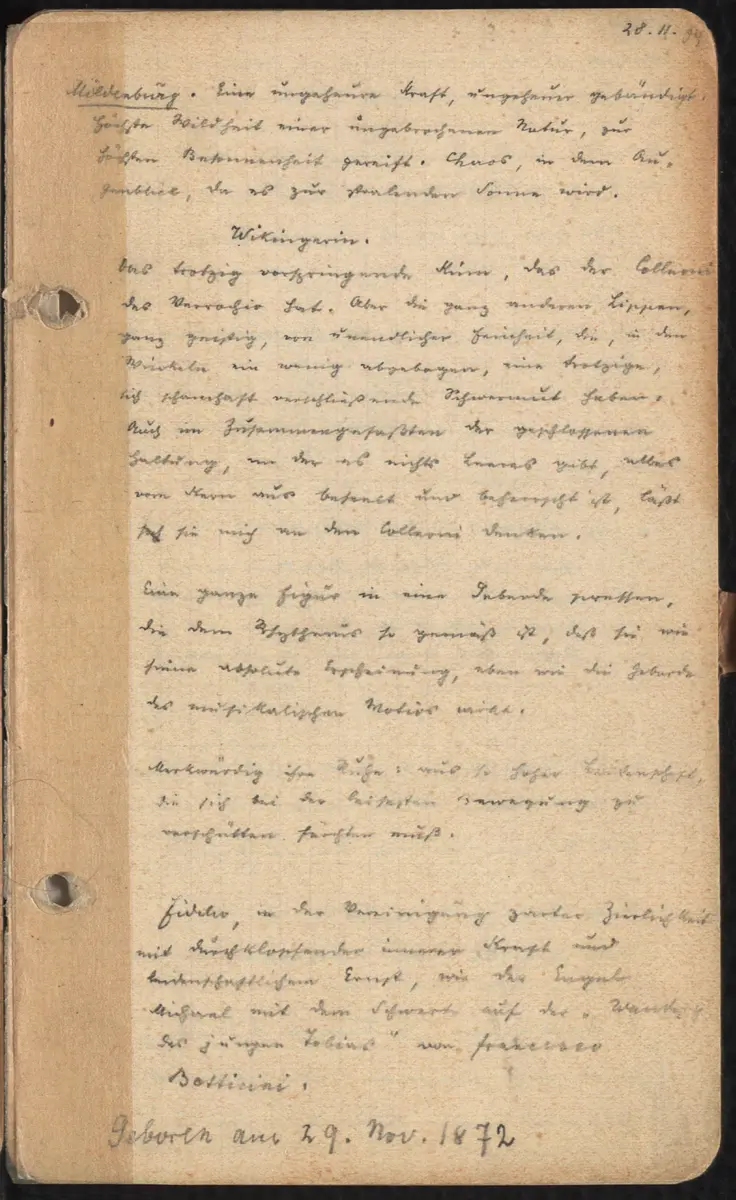 28. 11.
Mildenburg. Eine ungeheure Kraft, ungeheuer gebändigt.
Höchste Wildheit einer ungebrochenen Natur, zur
höchsten Besonnenheit gereift. Chaos, in dem Au-
genblick, da es zur stralenden Sonne wird.
Wikingerin.
Das trotzig vorspringende Kinn, das der Colleoni
des Verrochio hat. Aber die ganz anderen Lippen,
ganz geistig, von unendlicher Feinheit, die, in den
Winkeln ein wenig abgebogen, eine trotzige,
sich schamhaft verschließende Schwermut haben.
Auch im Zusammengefaßten der geschlossenen
Haltung, an der es nichts Leeres gibt, alles
vom Kern aus beseelt und beherrscht ist, läßt
sie mich an den Colleoni denken.
Eine ganze Figur in eine Geberde pressen,
die dem Rhythmus so gemäß ist, daß sie wie
seine absolute Erscheinung, eben wie die Geberde
des musikalischen Motivs wirkt.
Merkwürdig ihre Ruhe: aus so hoher Leidenschaft,
die sich bei der leisesten Bewegung zu
verschütten fürchten muß.
Fidelio, in der Vereinigung zarter Zierlichkeit
mit durchklopfender innerer Kraft und
leidenschaftlichem Ernst, wie der Engel
Michael mit dem Schwert auf der „
des jungen Tobias" von Francesco
Botticini.
Geboren am 29. Nov. 1872